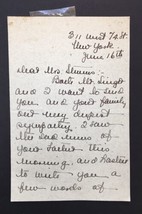 311 West 74 St.
New York.
June 16th
Dear Mrs. Straus:-
Both Mr. Singer
and I want to send
you, and your family,
our very deepest
sympathy. I saw
the sad news of
your
this
morning, and hasten
to write you a
few words of